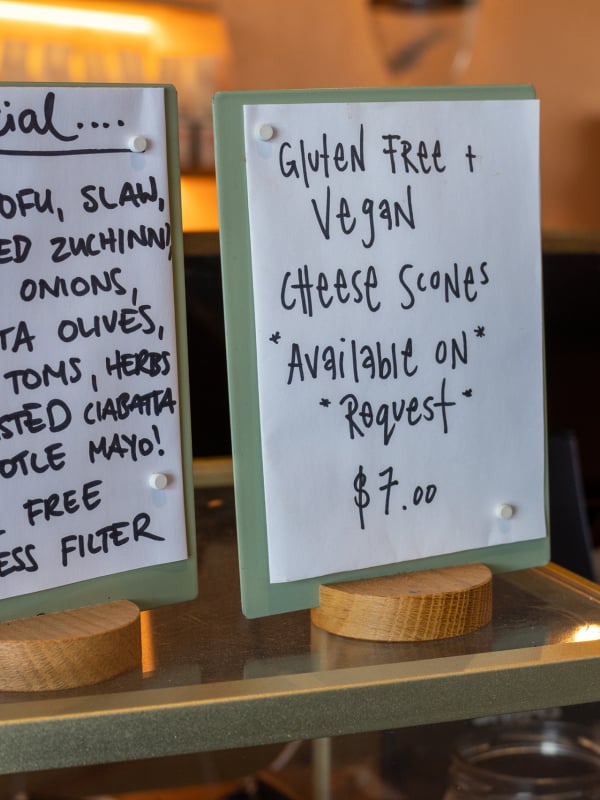 SLAW,
ZUCHINNI
ONIONS,
OLIVES,
TOMS, HERBS
CIABATTA
MAYO!
FREE
FILTER
Gluten Free +
Vegan
Cheese Scones
*Available on*
*Request*
$7.00